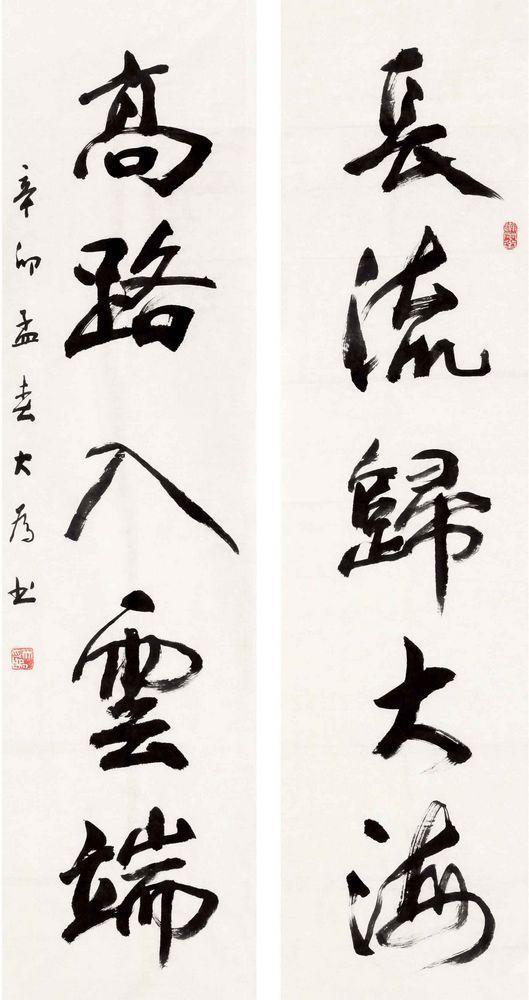 長流歸大海
高路入雲端
辛卯孟春大為书